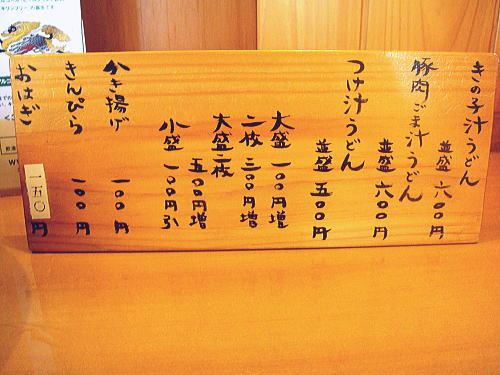 きの子汁うどん
並盛 六〇〇円
豚肉ごま汁うどん
並盛 六〇〇円
つけ汁うどん
並盛 五〇〇円
大盛 一〇〇円増
二枚 三〇〇円増
大盛二枚
五〇〇円増
小盛 一〇〇円引
かき揚げ
一〇〇円
きんぴら
一〇〇円
おはぎ
一五〇円